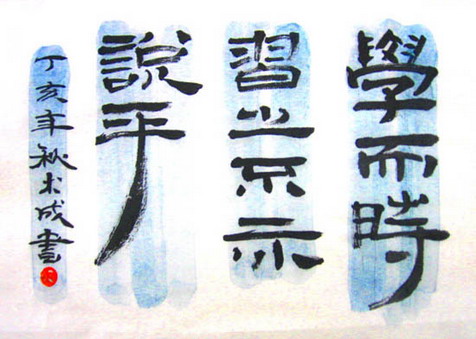 學而時
習之不亦
說乎
丁亥年秋术成書